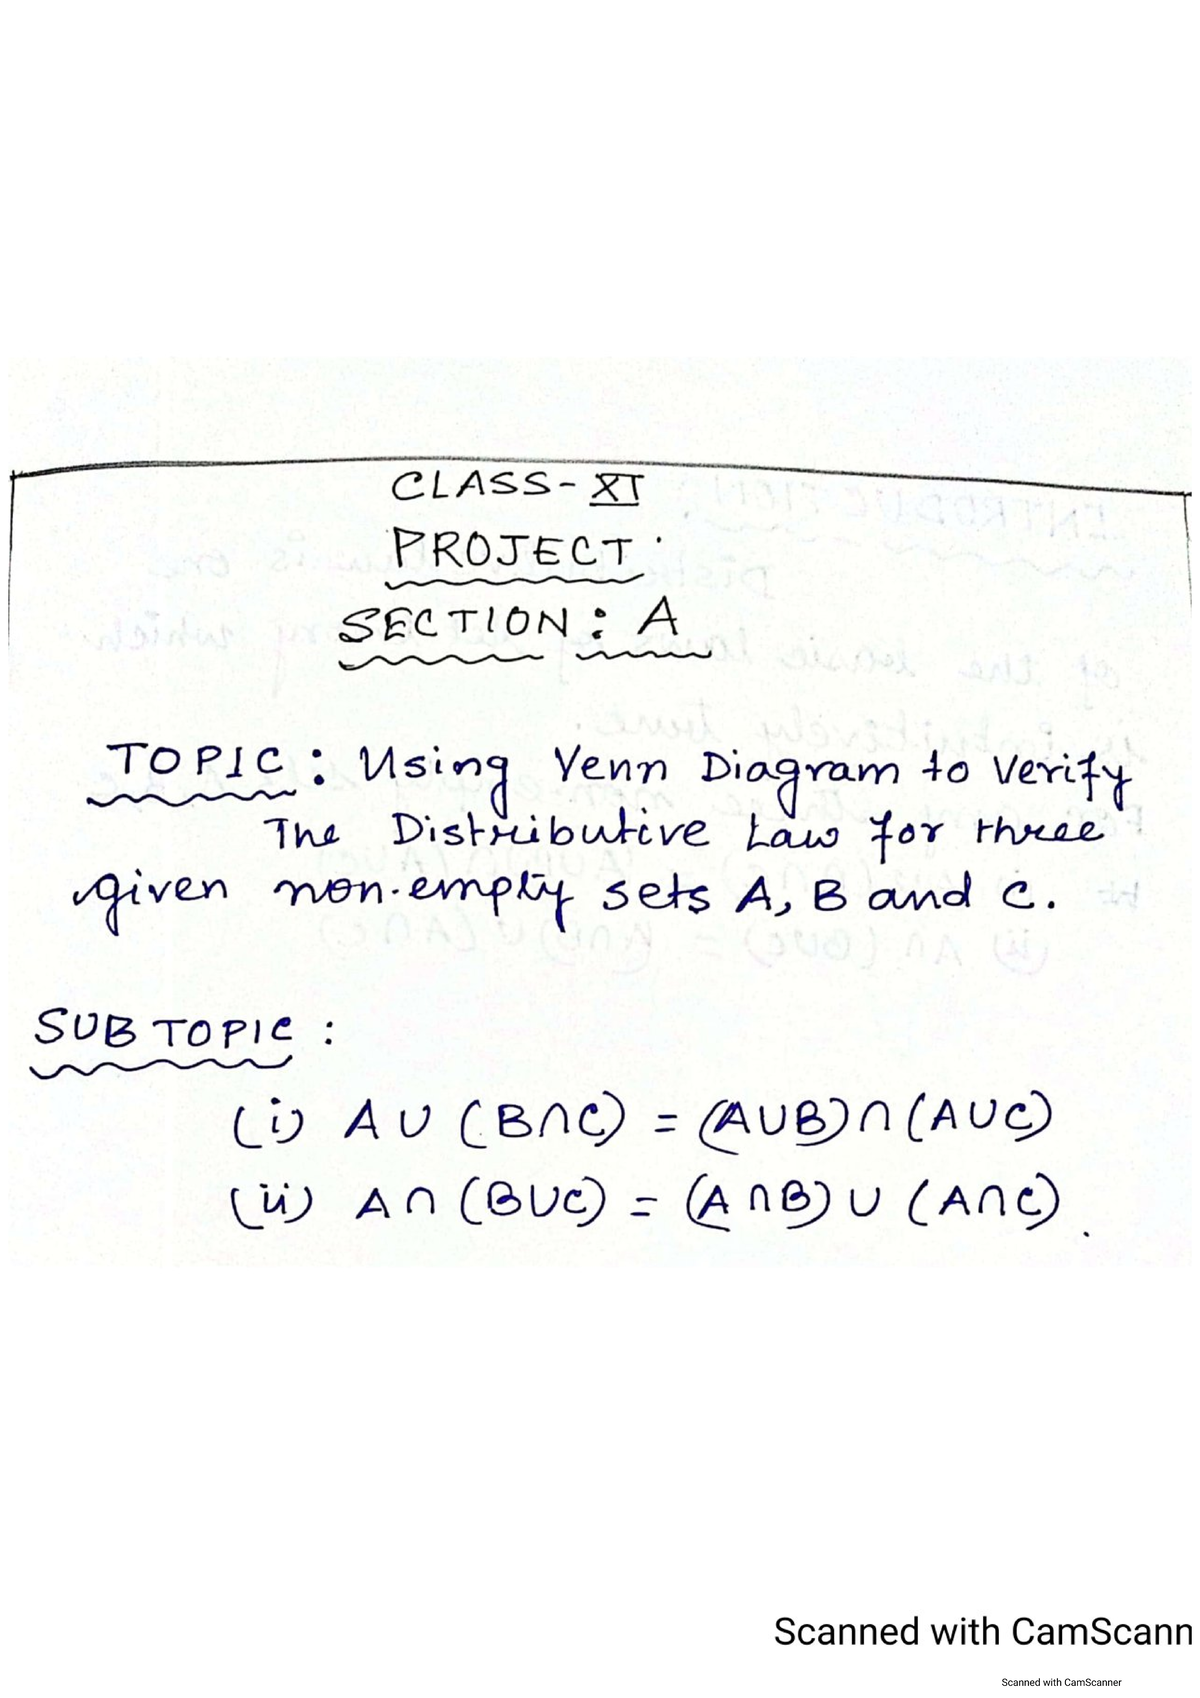 CLASS-XI
PROJECT.
SECTION: A
TOPIC: Using Venn Diagram to Verify
The Distributive Law for three
given non-empty sets A, B and C.
SUB TOPIC :
(i) A ∪ (B∩C) = (A∪B)∩(A∪C)
(ii) A∩(B∪C) = (A∩B) ∪ (A∩C).
Scanned with CamScann
Scanned with CamScanner